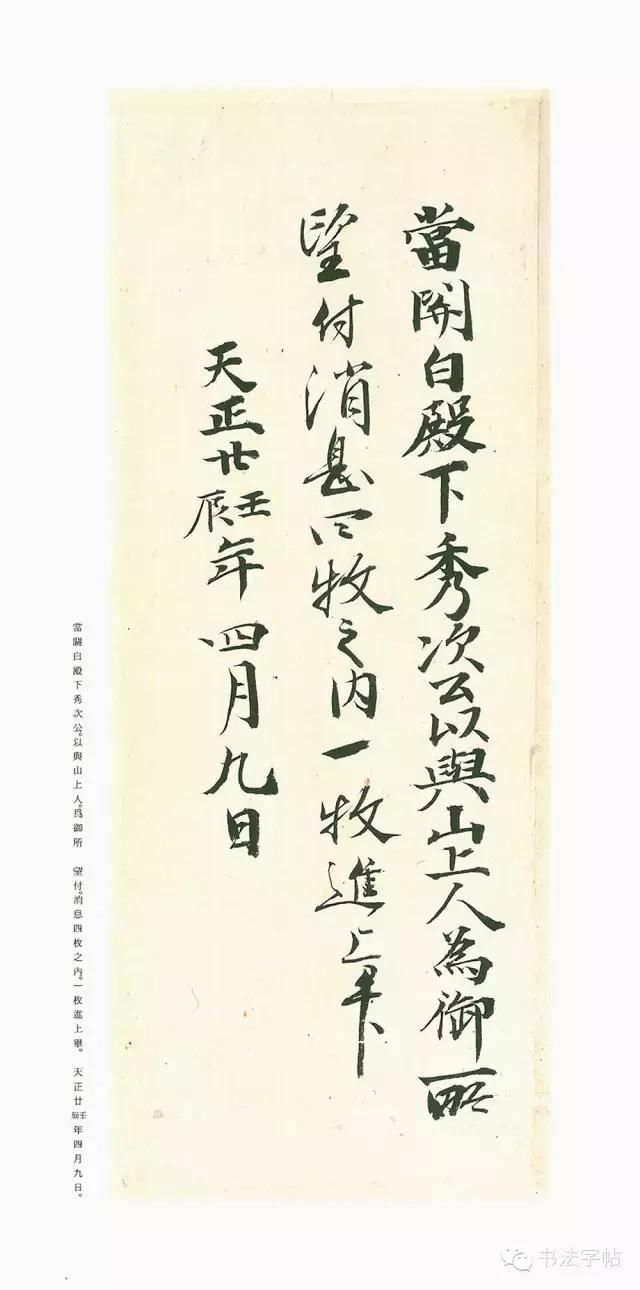 當関白殿下秀次公以與山上人為御所
望付消息四枚之内一枚進上畢
天正廿壬辰年四月九日
當關白殿下秀次公。以與山上人。爲御所　望付。消息四枚之內。一枚進上畢。　天正廿壬辰年四月九日。
书法字帖